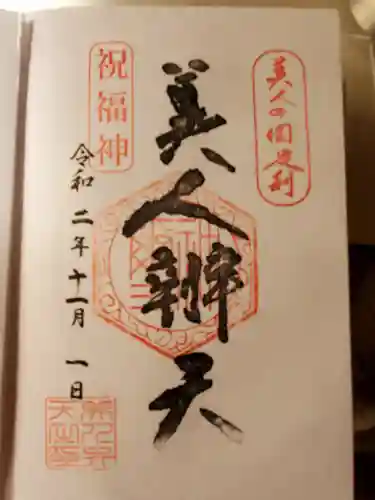 美人の国足利
美人辨天
祝福神
令和二年十一月一日